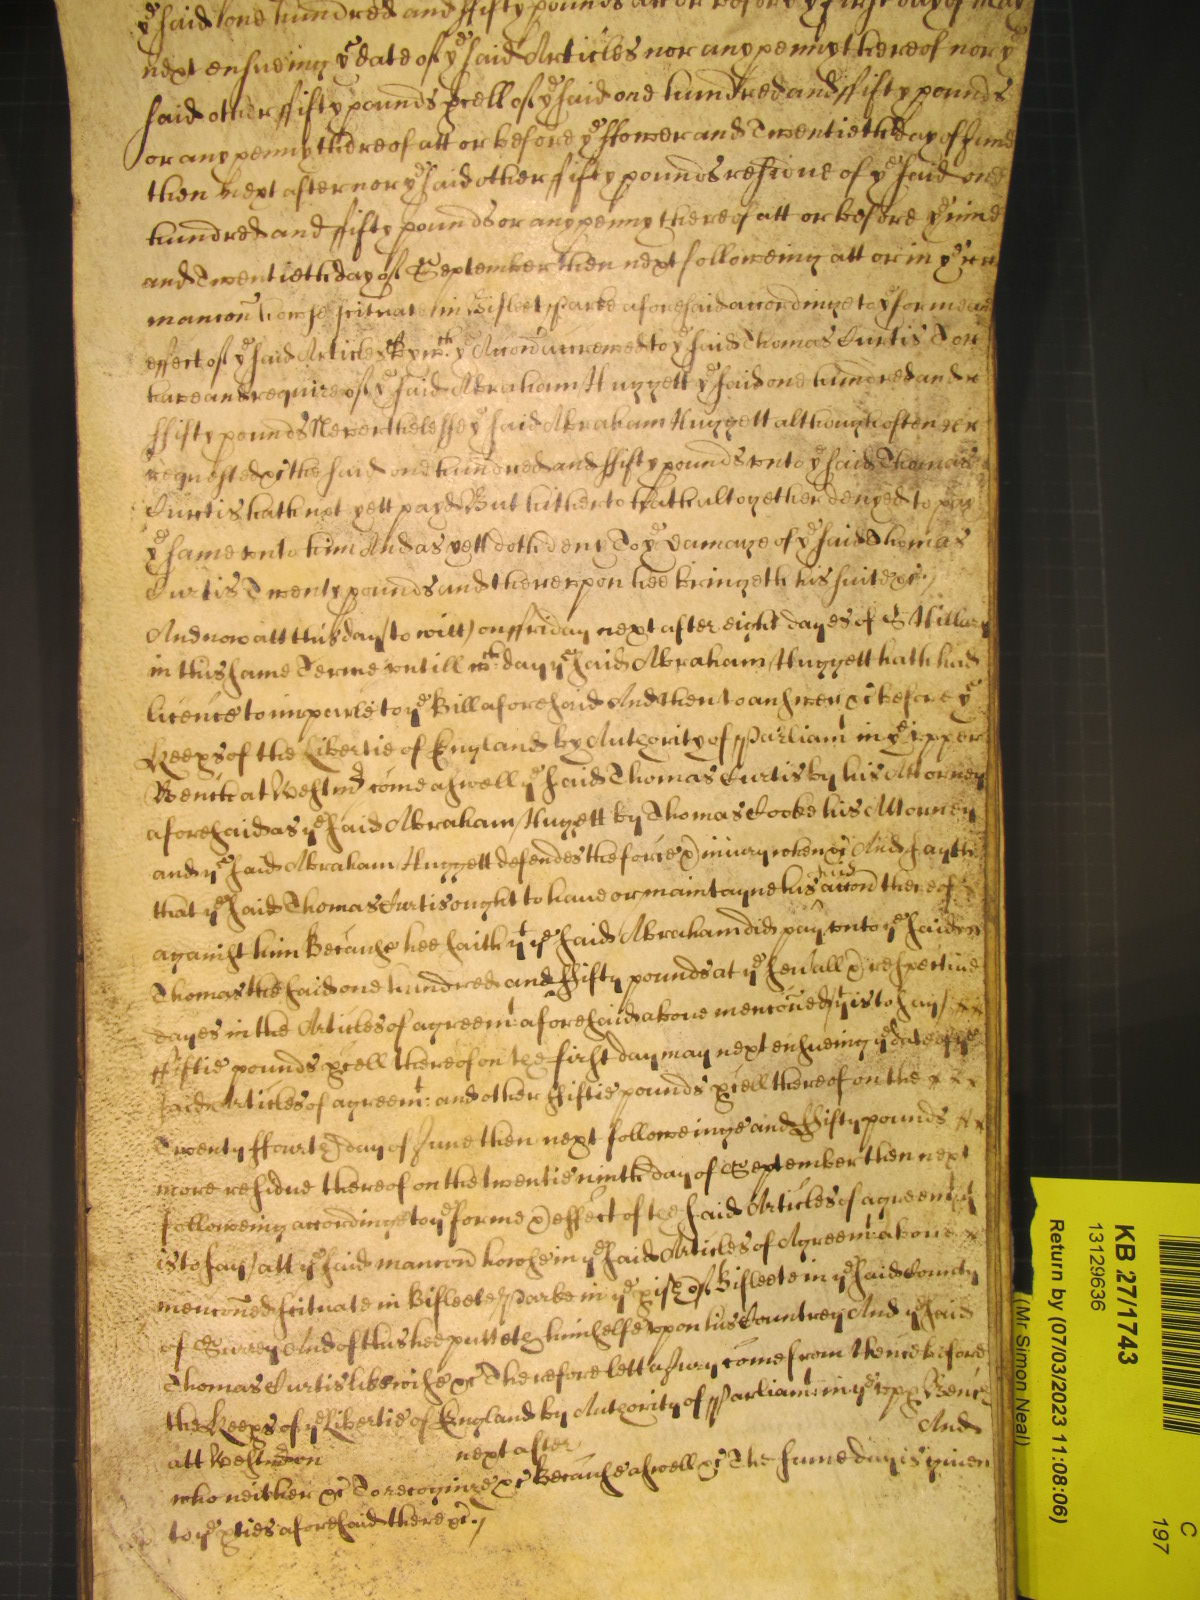 ye said one hundred and ffifty pounds att or before ye first day of May
next ensueing ye date of ye said Articles nor any penny thereof nor ye
said other ffifty pounds pcell of ye said one hundred and ffifty pounds
or any penny thereof att or before ye ffower and Twentieth day of June
then next after nor ye said other fifty pounds residue of ye said one
hundred and ffifty pounds or any penny thereof att or before ye nine
and Twentieth day of September then next followeing att or in ye
mancon howse scituate in Bisleet Parke aforesaid accordinge to ye forme and
effect of ye said Articles By wch ye Accon accrewed to ye said Thomas Curtis To
have and require of ye said Abraham Huggett ye said one hundred and
ffifty pounds Neverthelesse ye said Abraham Huggett although often
requested &c the said one hundred and ffifty pounds unto ye said Thomas
Curtis hath not yett payd But hitherto hath altogether denyed to pay
ye same unto him And as yett doth deny To ye damage of ye said Thomas
Curtis Twenty pounds and thereupon hee bringeth his suite &c.
And now att this day (to witt) on ffriday next after eight dayes of St Hillary
in this same Terme untill wch day ye said Abraham Huggett hath had
licence to imparle to ye Bill aforesaid And then to answer &c before ye
Keeps of the Libertie of England by Authority of Parliamt in ye upper
Bench at Westmr come aswell ye said Thomas Curtis by his Attorney
aforesaid as ye said Abraham Huggett by Thomas Cooke his Attorney
and ye said Abraham Huggett defendes the force & injury when &c And sayth
that ye said Thomas Curtis ought to have or maintayne his said accon thereof
against him Because hee saith yt ye said Abraham did pay unto ye said
Thomas the said one hundred and ffifty pounds at ye sevall & respective
dayes in the Articles of agreemt aforesaid above menconed yt is to say
ffiftie pounds pcell thereof on the first day may next ensueing ye date of ye
said Articles of agreemt: and other ffiftie pounds pcell thereof on the
Twenty ffourth day of June then next followeinge and ffifty pounds
more residue thereof on the twentie ninth day of September then next
followeing accordinge to ye forme & effect of the said Articles of agreemt yt
is to say att ye said mancon howse in ye said Articles of Agreemt above
menconed scituate in Bisleete Parke in ye pish of Bisleete in ye said County
of Surrey And of this hee putteth himselfe uppon his Countrey And ye said
Thomas Curtis likewise &c Therefore lett a Jury come from thence before
the Keeps of ye Libertie of England by Authority of Parliamt in ye upp Bench
att Westm on next after And
who neither &c To recognize &c Because aswell &c The same day is given
to ye pties aforesaid there &c.
KB 27/1743
13129636
Return by (07/03/2023 11:08:06)
(Mr Simon Neal)
C
197